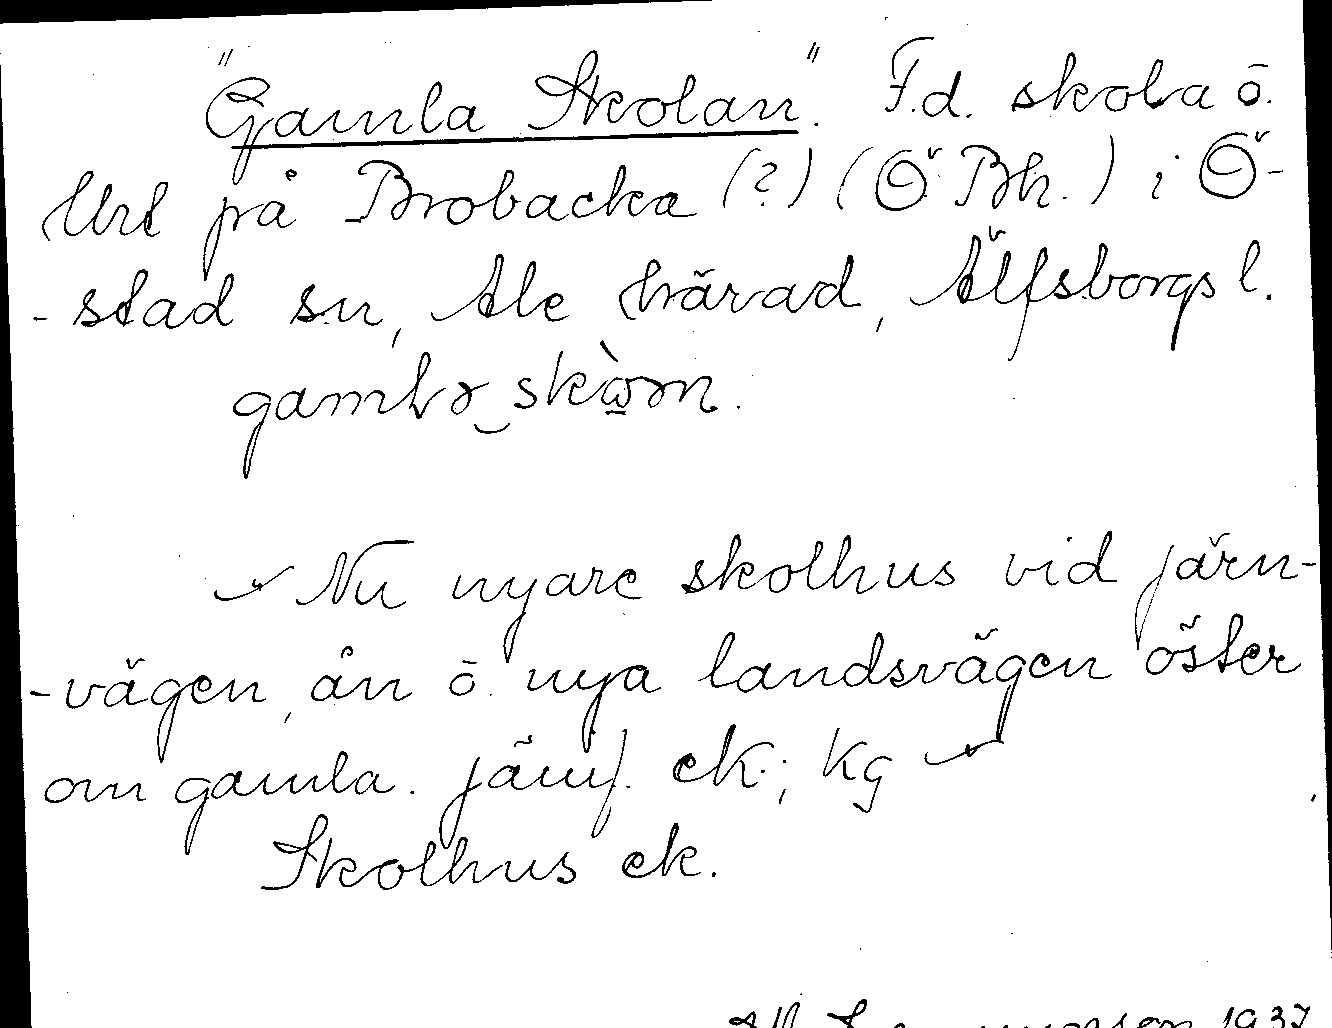 "Gamla Skolan". F.d. skola ö.
Url på Brobacka (?) (Ö Bh.) i Ö-
-stad sn, Ale härad, Älfsborgs l.
gambɘ‿skὼɘn.
Nu nyare skolhus vid järn-
-vägen, ån ö. nya landsvägen öster
om gamla. jämf. ek.; kg
Skolhus ek.
1937